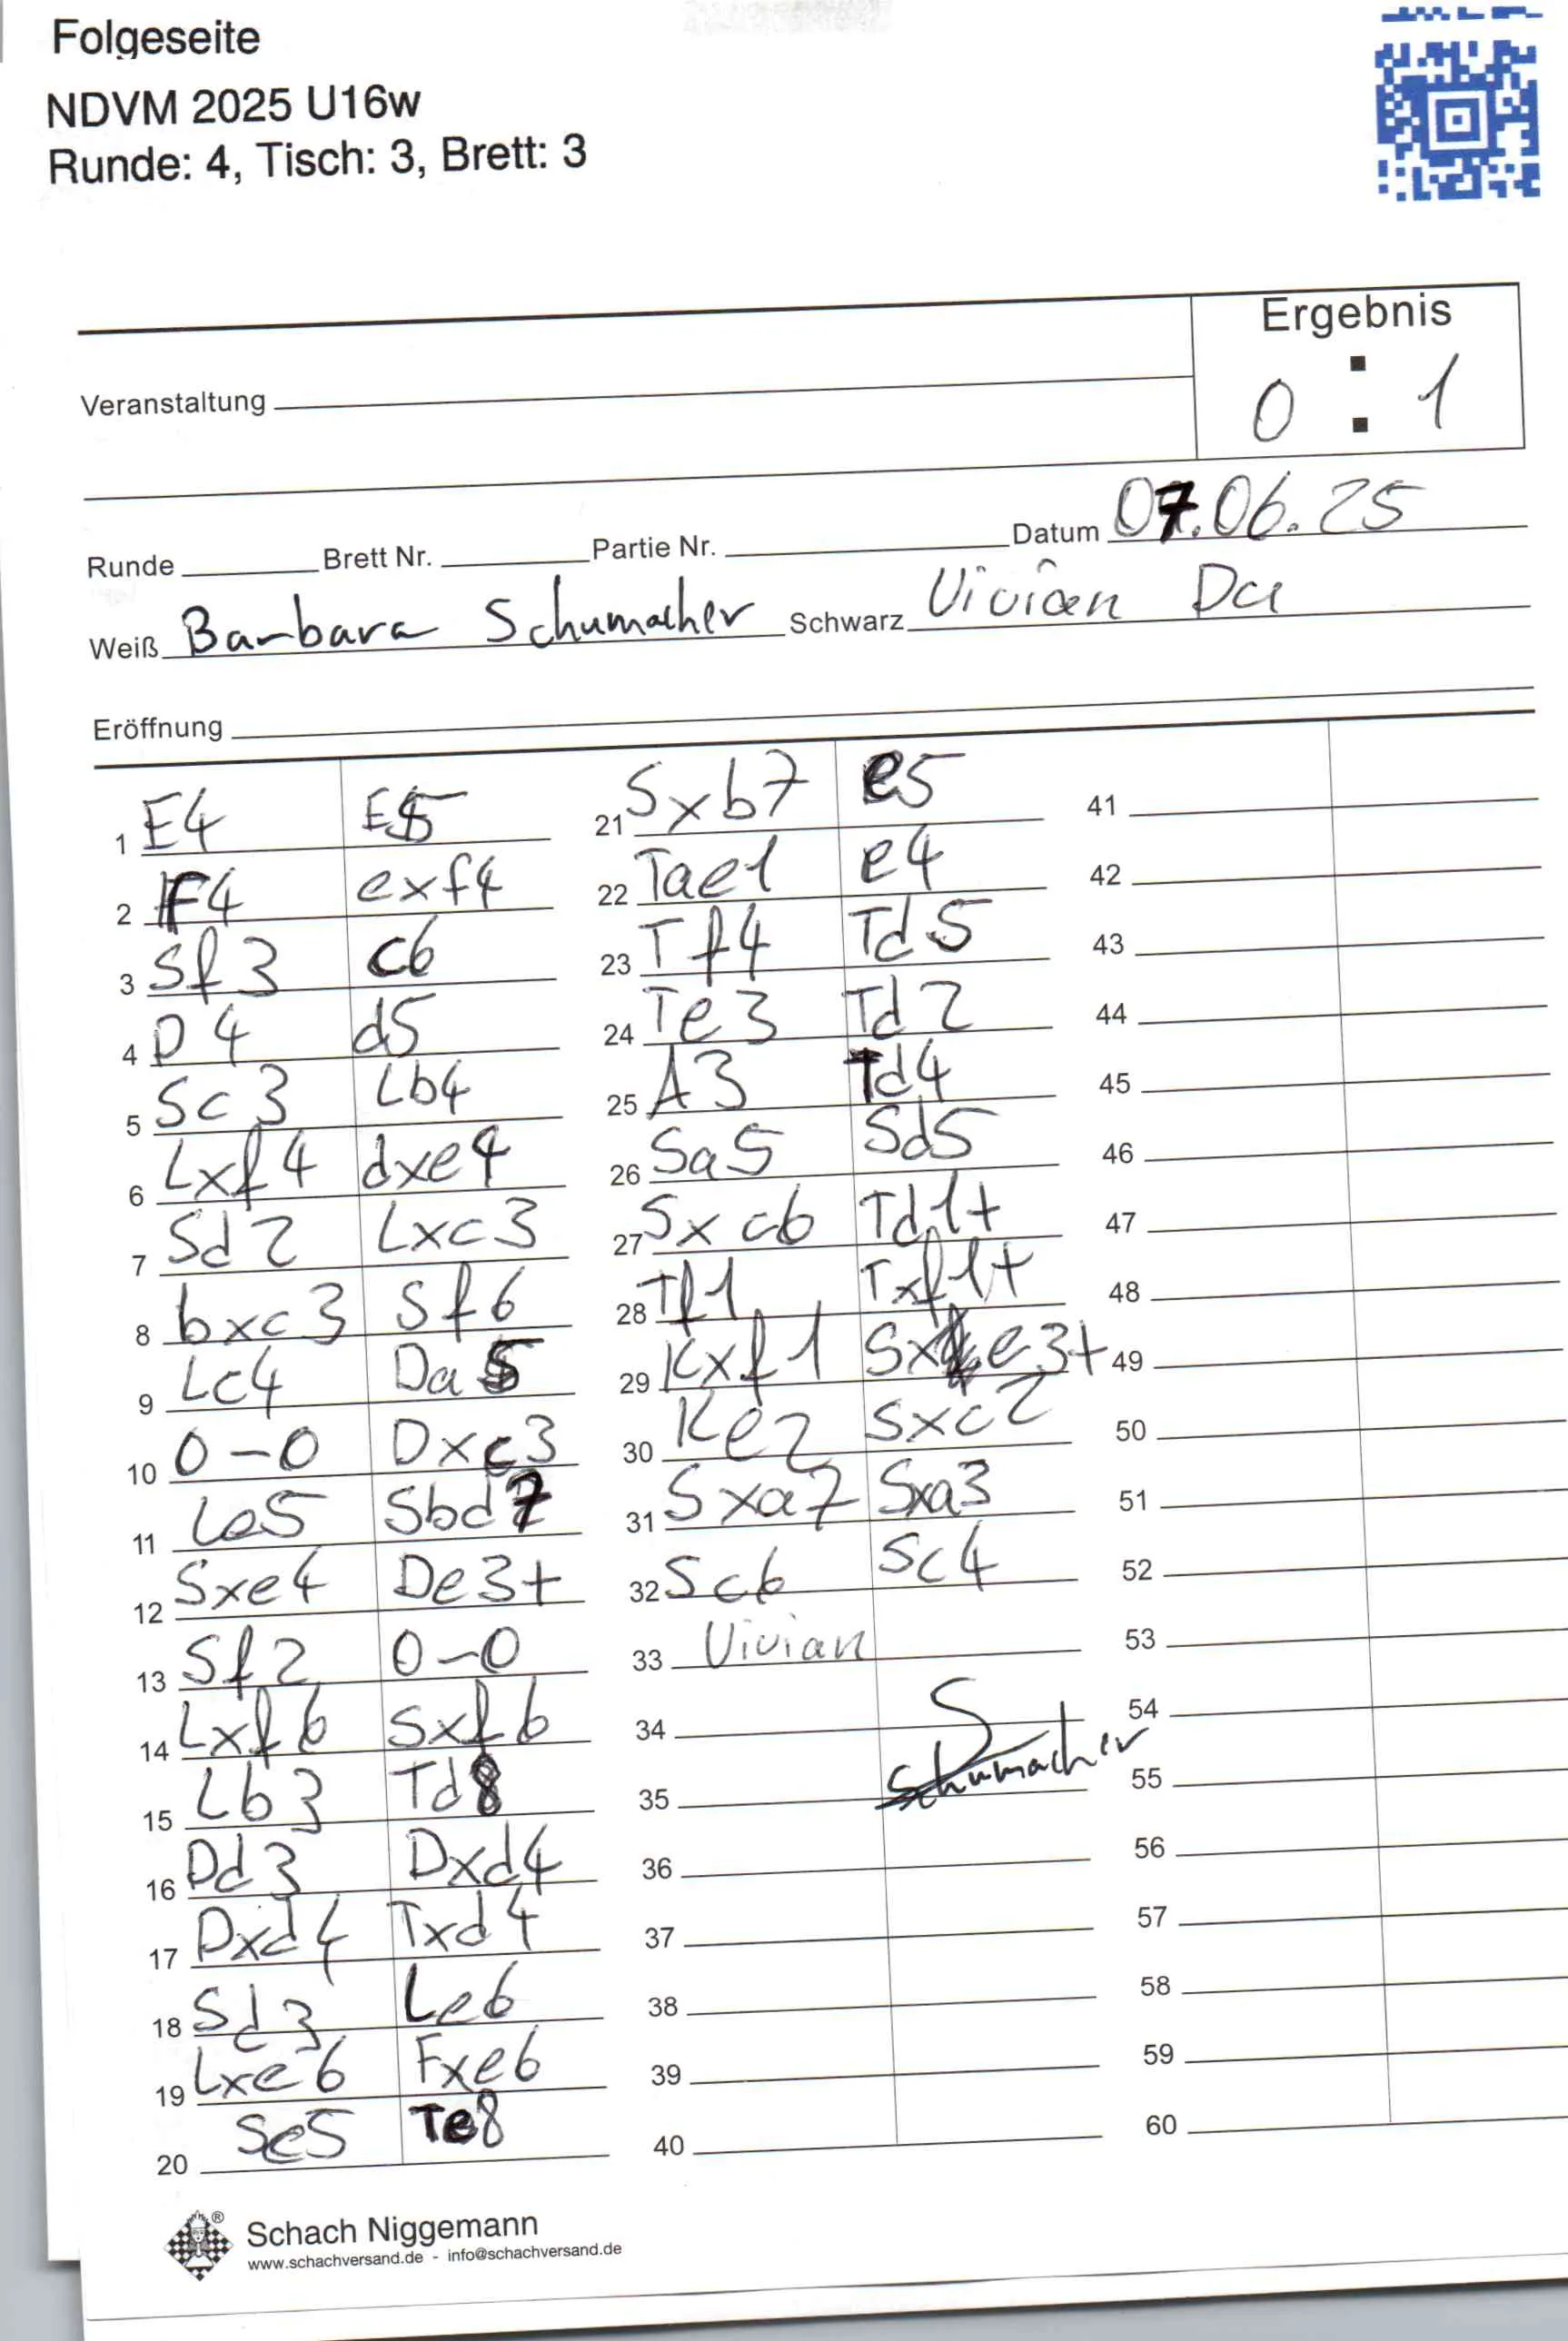 Folgeseite
NDVM 2025 U16w
Runde: 4, Tisch: 3, Brett: 3
Ergebnis
0 : 1
Veranstaltung
Runde Brett Nr. Partie Nr. Datum 07.06.25
Weiß Barbara Schumacher Schwarz Vivian Du
Eröffnung
1 E4 E5
2 F4 exf4
3 Sf3 c6
4 D4 d5
5 Sc3 Lb4
6 Lxf4 dxe4
7 Sd2 Lxc3
8 bxc3 Sf6
9 Lc4 Da5
10 0-0 Dxc3
11 Le5 Sbd7
12 Sxe4 De3+
13 Sf2 0-0
14 Lxf6 Sxf6
15 Lb3 Td8
16 Dd3 Dxd4
17 Dxd4 Txd4
18 Sd3 Le6
19 Lxe6 Fxe6
20 Sc5 Te8
21 Sxb7 e5
22 Tae1 e4
23 Tf4 Td5
24 Te3 Td2
25 A3 Td4
26 Sa5 Sd5
27 Sxc6 Td1+
28 Tf1 Txf1+
29 Kxf1 Sxe3+
30 Ke2 Sxc2
31 Sxa7 Sxa3
32 Sc6 Sc4
33 Vivian
34 S
35 Schumacher
36
37
38
39
40
41
42
43
44
45
46
47
48
49
50
51
52
53
54
55
56
57
58
59
60
Schach Niggemann
www.schachversand.de - info@schachversand.de